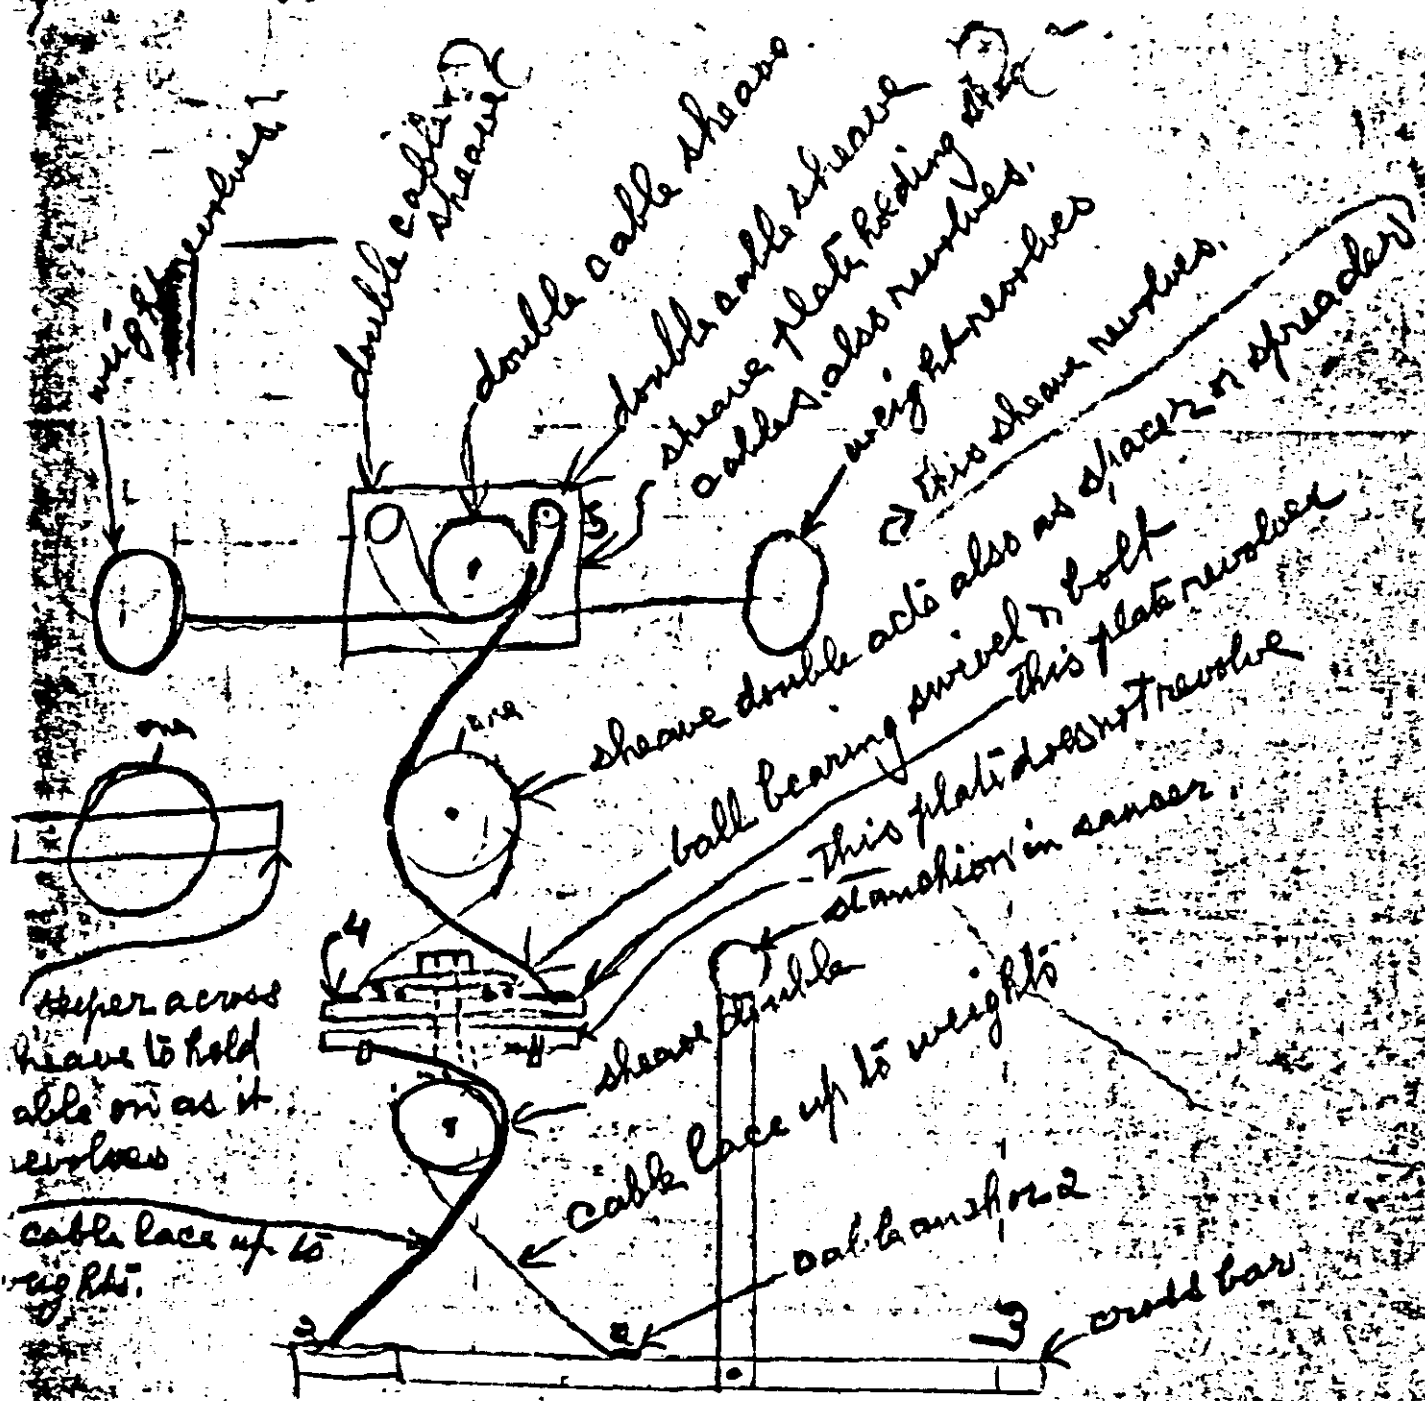 weight revolves
double cable
sheave
double cable sheave.
double cable sheave
sheave plate holding
cables. also revolves.
weight revolves
this sheave revolves.
sheave double acts also as spacer or spreader
ball bearing swivel bolt
this plate revolves
This plate does not revolve
stanchion in saucer.
5
one
one
4
across
heave to hold
able on as it
evolves
sheave double
cable lace up to weights
cable lace up to
ights.
cable anchor 2
3
2
3
cross bar